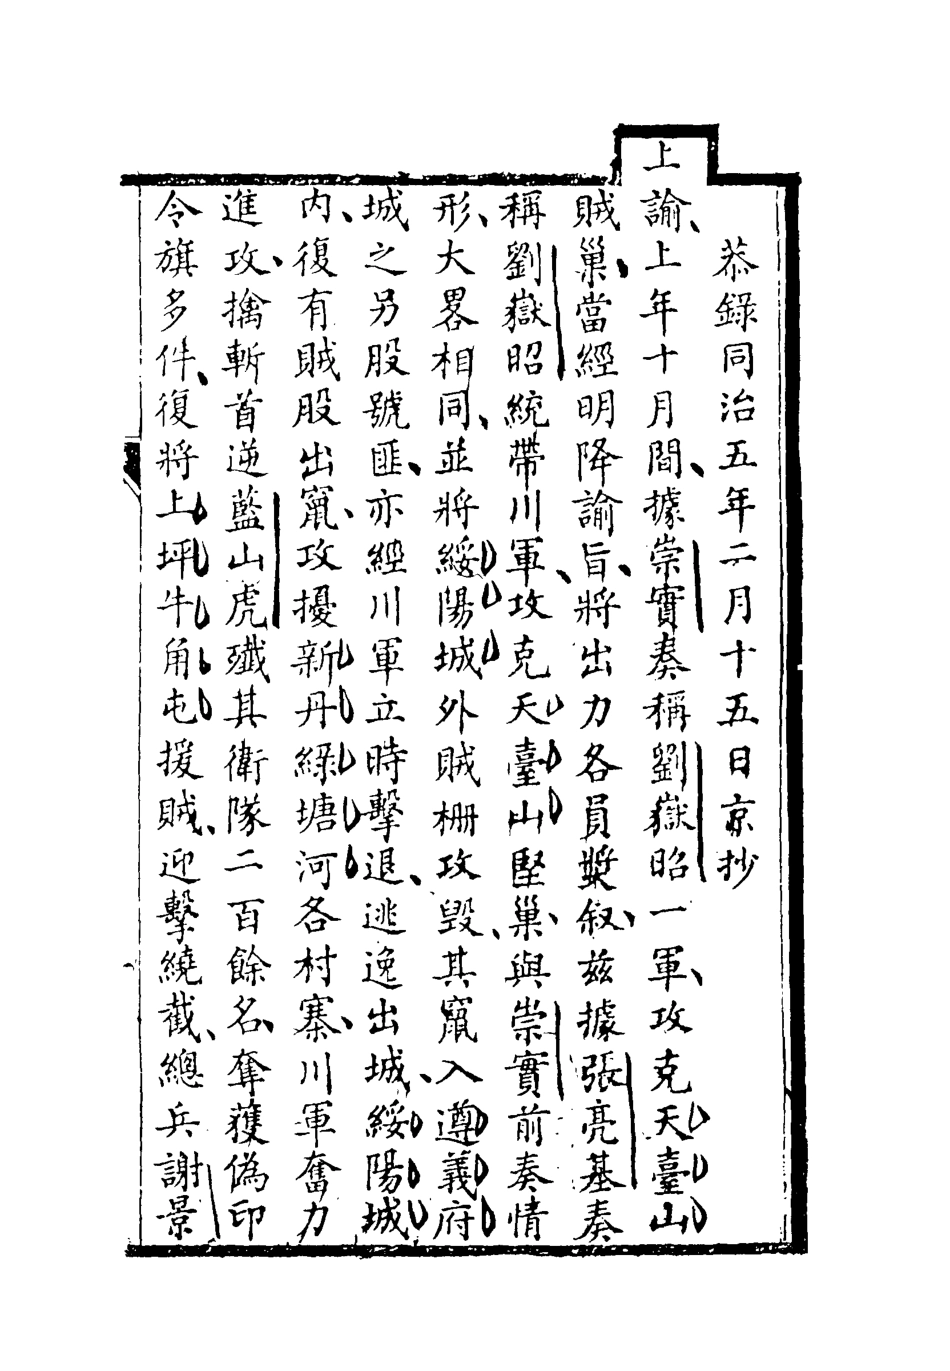 恭錄同治五年二月十五日京抄
上諭、上年十月間、據崇實奏稱劉嶽昭一軍、攻克天臺山
賊巢、當經明降諭旨、將出力各員奬叙、兹據張亮基奏
稱劉嶽昭統帶川軍、攻克天臺山堅巢、與崇實前奏情
形、大畧相同、並將綏陽城外賊柵攻毁、其竄入遵義府
城之另股號匪、亦經川軍立時擊退、逃逸出城、綏陽城
内、復有賊股出竄、攻擾新丹綠塘河各村寨、川軍奮力
進攻、擒斬首逆藍山虎殲其衛隊二百餘名、奪獲偽印
令旗多件、復將上坪牛角屯援賊、迎擊繞截、總兵謝景